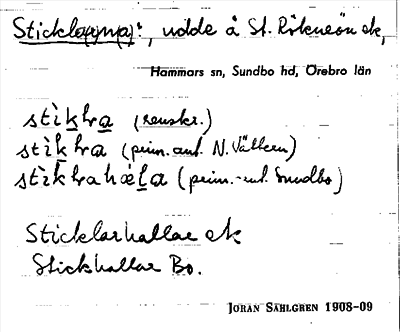 udde å St. Rökneön ek,
Hammars sn, Sundbo hd, Örebro län
stìkra (renskr.)
stìkra (prim. ant. N. Vättern)
stìkrahæla (prim.-ant. Sundbo)
Sticklarhallar ek
Stickhallar Bo.
JÖRAN SAHLGREN 1908-09